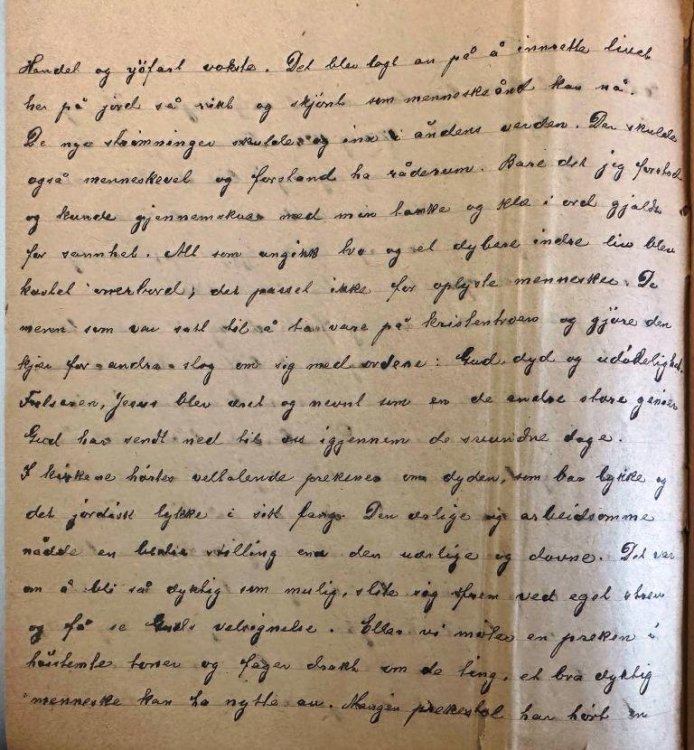 Handel og sjöfart vokste. Det blev lagt an på å innrette livet
her på jord så rikt og skjönt som menneskeånd kan nå.
De nye strömninger skulde og inn i åndens verden. Der skulde
også menneskevet og forstand ha råderum. Bare det jeg forstod
og kunde gjennemskue med min tanke og klæ i ord gjaldt
for sannhet. Alt som angikk tro og et dybere indre liv blev
kastet overbord, det passet ikke for oplyste mennesker. De
menn som var satt til å ta vare på kristentroen og gjöre den
kjær for andre slog om sig med ordene: Gud, dyd og udödelighet.
Frelseren, Jesus blev æret og nevnt som en de andre store genier
Gud har sendt ned til oss igjennem de svundne dage.
I kirkene hörtes veltalende prekener om dyden, som bar lykke og
det jordisk lykke i sitt fang. Den ærlige og arbeidsomme
nådde en bedre stilling enn den uærlige og dovne. Det var
om å bli så dyktig som mulig, slite sig frem ved eget strev
og få se Guds velsignelse. Eller vi möter en preken i
höistemte toner og fager drakt om de ting, et bra dyktig
menneske kan ha nytte av. Mangen prekestol har hört en